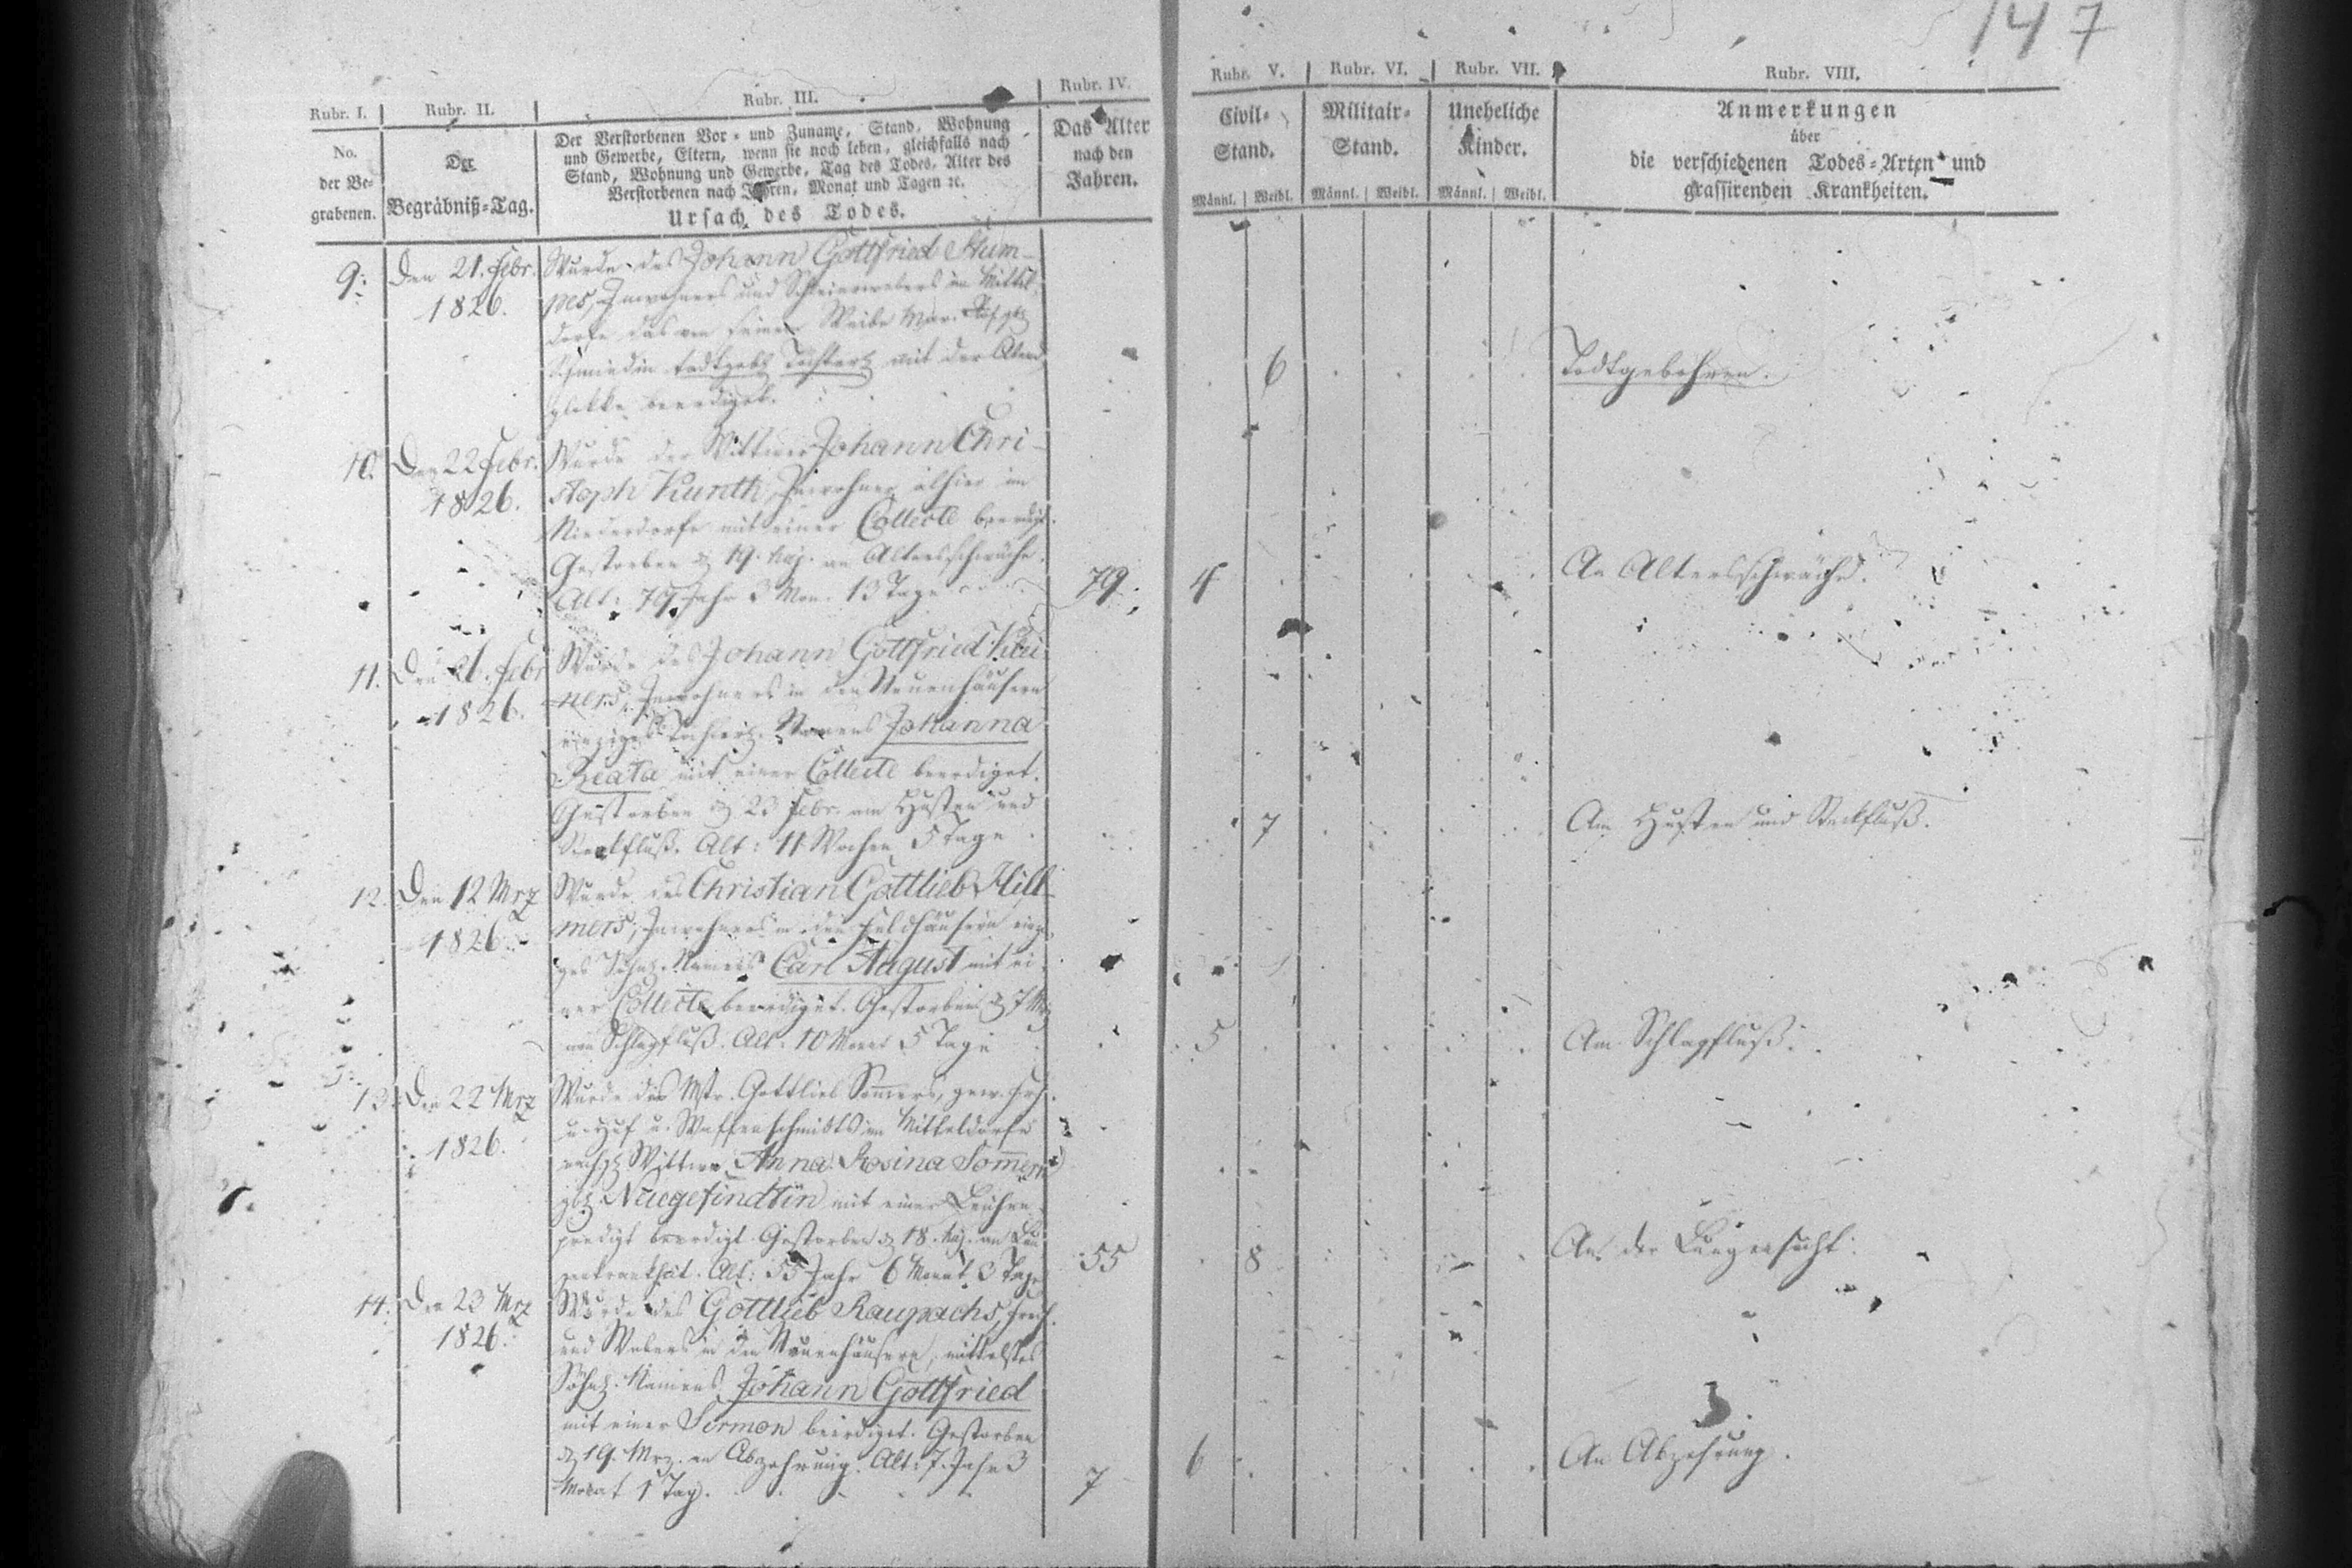 147
Rubr. I. Rubr. II. Rubr. III. Rubr. IV. Rubr. V. Rubr. VI. Rubr. VII. Rubr. VIII.
No. der Be-
grabenen.
Der
Begräbniß-Tag.
Der Verstorbenen Vor- und Zuname, Stand, Wohnung
und Gewerbe, Eltern, wenn sie noch leben, gleichfalls nach
Stand, Wohnung und Gewerbe, Tag des Todes, Alter des
Verstorbenen nach Jahren, Monat und Tagen ꝛc.
Ursach des Todes.
Das Alter
nach den
Jahren.
Civil-
Stand.
Männl. Weibl.
Militair-
Stand.
Männl. Weibl.
Uneheliche
Kinder.
Männl. Weibl.
Anmerkungen
über
die verschiedenen Todes-Arten und
grassirenden Krankheiten.
9. Den 21. Febr.
1826.
Wurde des Johann Gottfried Stum-
pes, Inwohners und Schleierwebers im Mittel-
dorfe das von seinem Weibe
Schmiedin todtgeb. Töchterl. mit der
glokke beerdiget.
6 Todtgebohren.
10. Den 22 Febr.
1826.
Wurde der Wittwer Johann Chri-
stoph Kunth, Inwohner alhier im
Niederdorfe mit einer Collecte beerdigt.
Gestorben d. 19. huj. an Altersschwäche.
Alt: 79 Jahr 3 Mon. 13 Tage
79. 4 An Altersschwäche.
11. Den 26. Febr
1826.
Wurde des Johann Gottfried
ners, Inwohners in den Neuenhäusern
einziges Töchterl. Namens Johanna
Beata mit einer Collecte beerdiget.
Gestorben d. 23 Febr. am Husten und
Steckfluß. Alt: 11 Wochen 5 Tage
7 Am Husten und Steckfluß.
12. Den 12 Mrz
1826.
Wurde des Christian Gottlieb Hill-
mers, Inwohners in den Feldhäusern einzi-
ges Söhnl. Namens Carl August mit ei-
ner Collecte beerdiget. Gestorben d. 7 Mrz
am Schlagfluß. Alt: 10 Monat 5 Tage
5 Am Schlagfluß.
13. Den 22 Mrz
1826.
Wurde des Mstr. Gottlieb Somers, gew.
u. Huf u. Waffenschmidts im Mitteldorfe
Wittwe Anna Rosina Somern
geb. Neugesindtin mit einer Leichen-
predigt beerdigt. Gestorben d. 18. huj. an Lun-
genkrankheit. Alt: 55 Jahr 6 Monat 3 Tage
55 8 An der Lungensucht.
14. Den 23 Mrz
1826.
Wurde des Gottlieb Raupachs,
und Webers in den Neuenhäusern, mittelstes
Söhnl. Namens Johann Gottfried
mit einer Sermon beerdiget. Gestorben
d. 19. Mrz. an Abzehrung. Alt: 7. Jahr 3
Monat 1 Tag.
7 6 An Abzehrung.